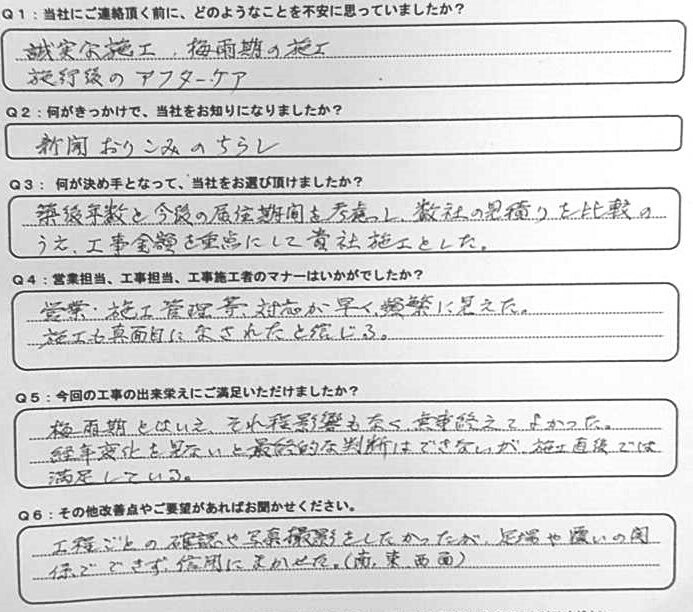 Q1：当社にご連絡頂く前に、どのようなことを不安に思っていましたか？
誠実な施工、梅雨期の施工
施行後のアフターケア
Q2：何がきっかけで、当社をお知りになりましたか？
新聞おりこみのちらし
Q3： 何が決め手となって、当社をお選び頂けましたか？
築後年数と今後の居住期間を考慮し、数社の見積りを比較の
うえ、工事金額を重点にして貴社施工とした。
Q4：営業担当、工事担当、工事施工者のマナーはいかがでしたか？
営業・施工管理等、対応が早く、頻繁に見えた。
施工も真面目になされたと信じる。
Q5：今回の工事の出来栄えにご満足いただけましたか？
梅雨期とはいえ、それ程影響もなく、無事終えてよかった。
経年変化を見ないと最終的な判断はできないが、施工直後では
満足している。
Q6：その他改善点やご要望があればお聞かせください。
工程ごとの確認や写真撮影をしたかったが、足場や覆いの関
係でできず信用にまかせた。（南、東、西面）